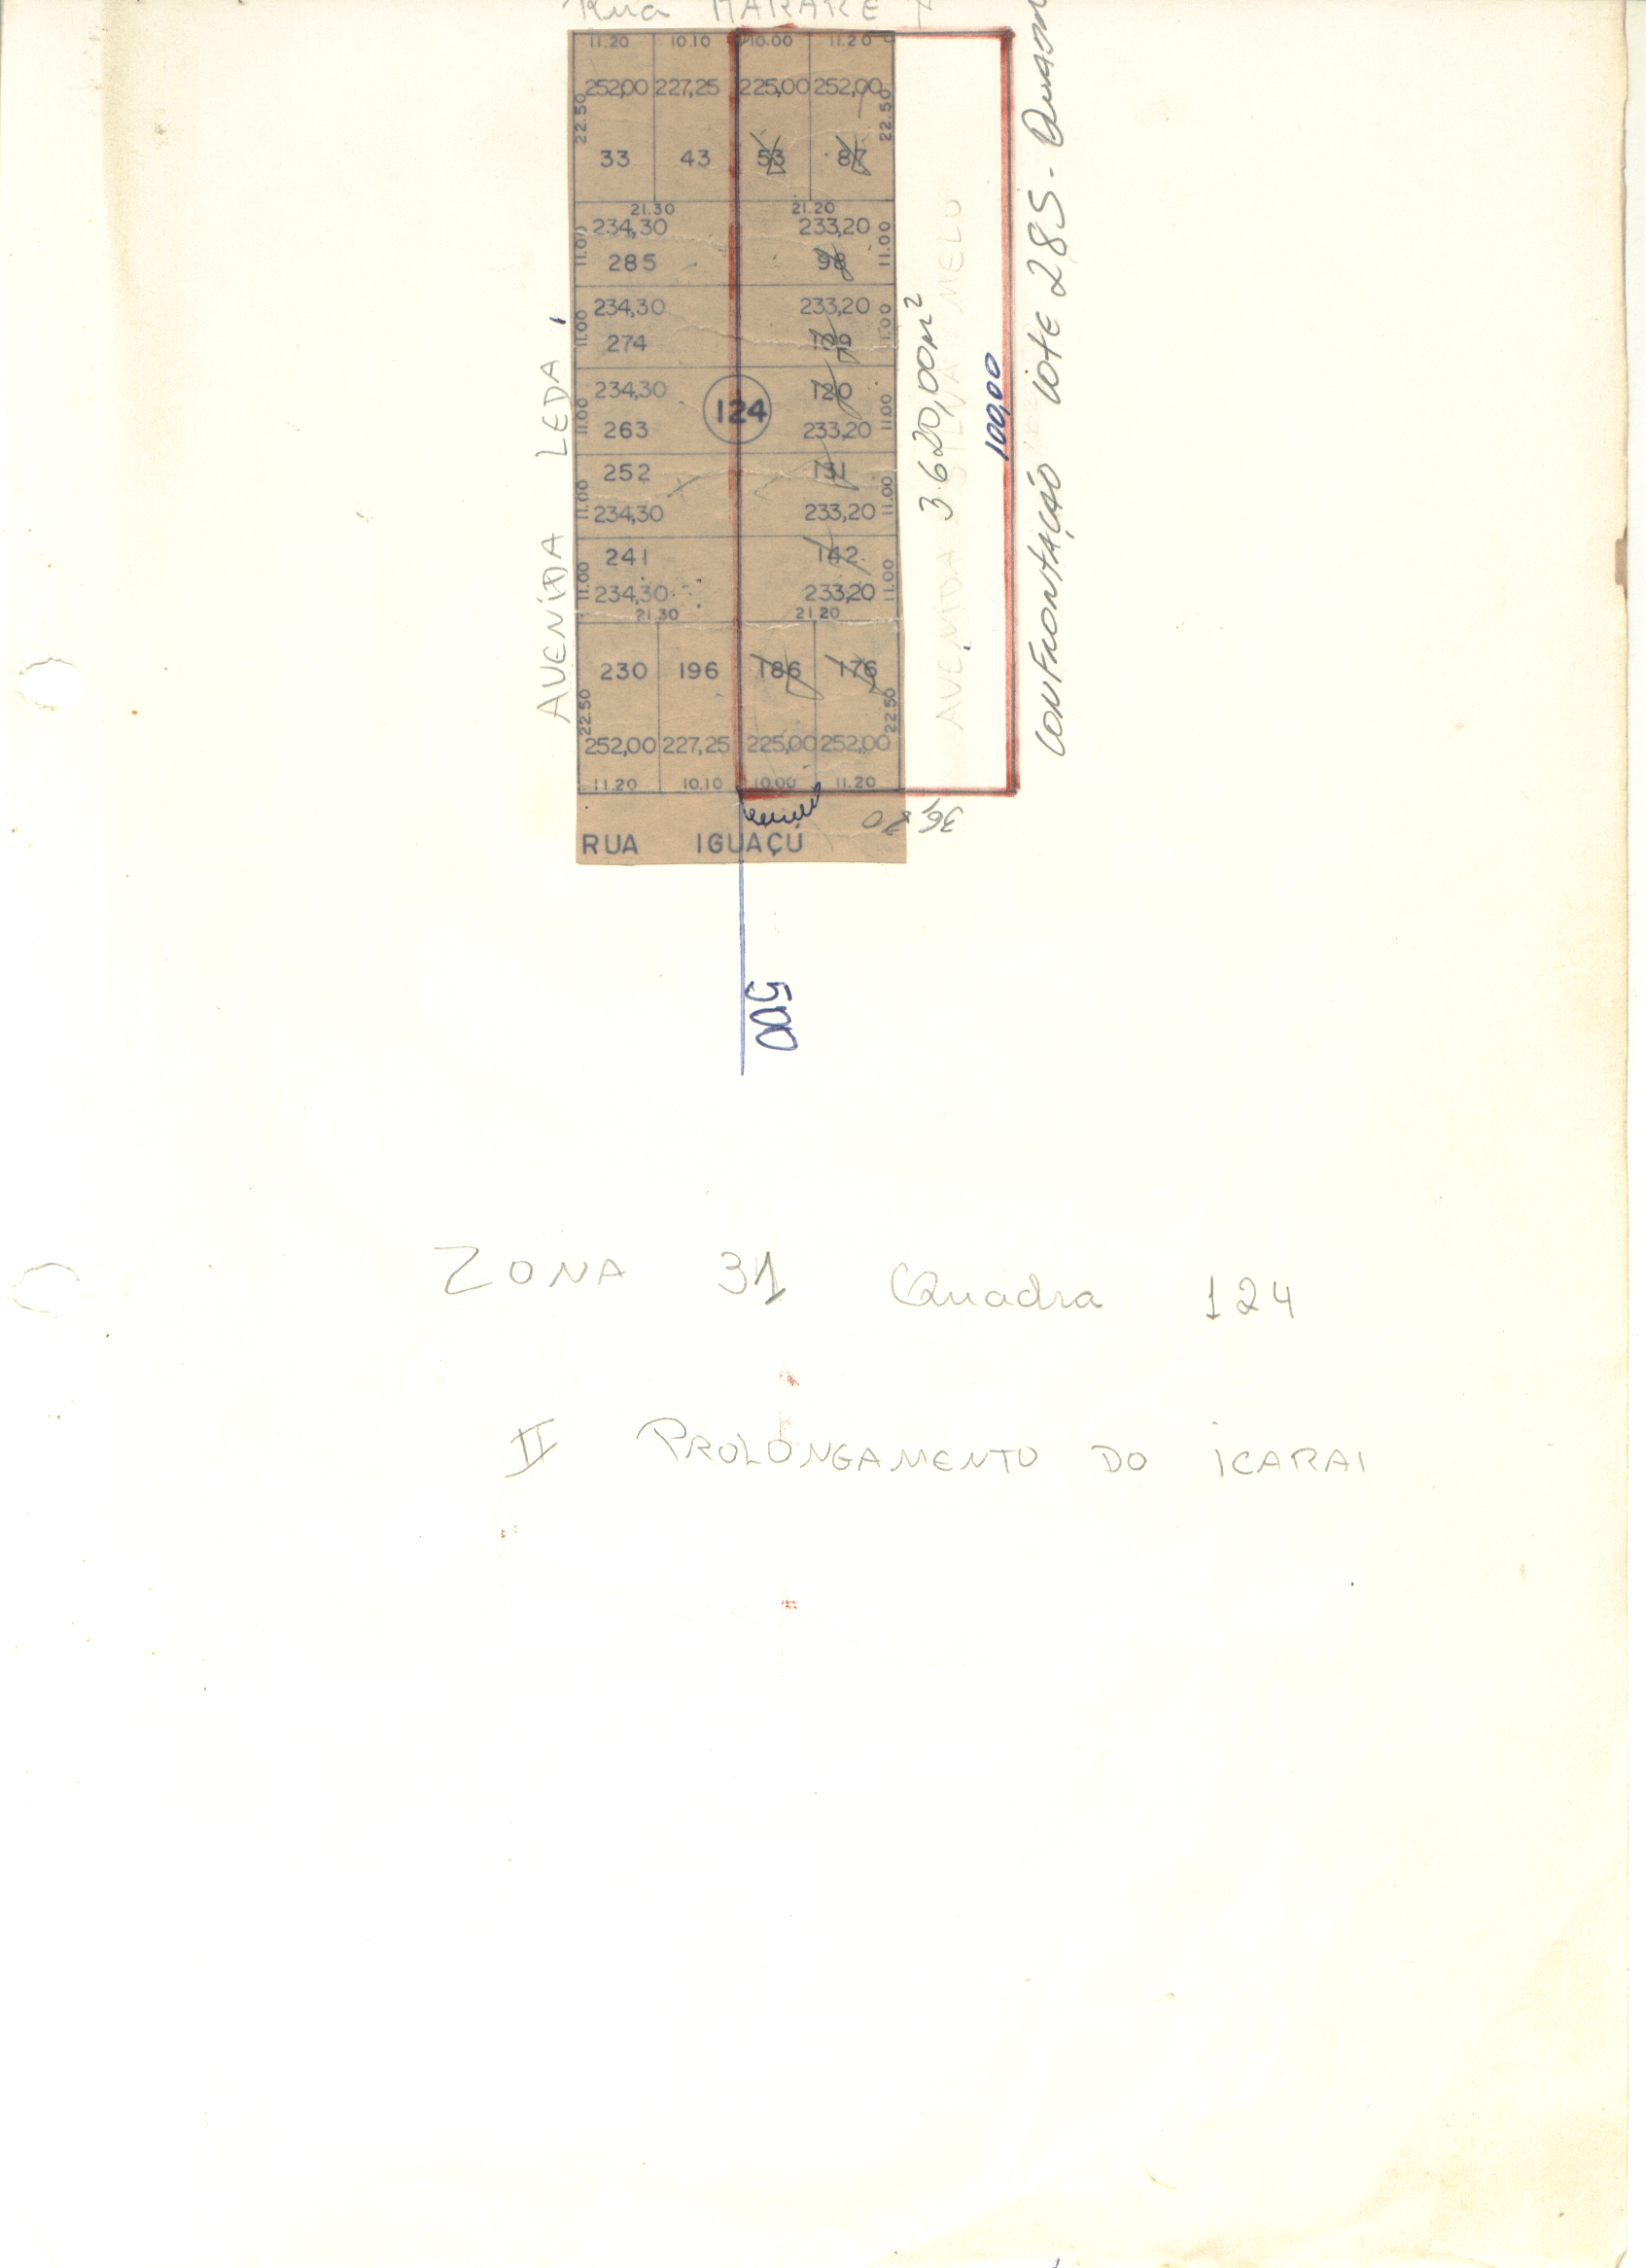 Rua
11.20 10.10 10.00 11.20
252,00 227,25 225,00 252,00
22.50 22.50
33 43 53 87
21.30 21.20
234,30 233,20
11.00 11.00
285 98
234,30 233,20
11.00 11.00
274 109
234,30 120
11.00 124 11.00
263 233,20
252 131
11.00 11.00
234,30 233,20
241 142
11.00 11.00
234,30 233,20
21.30 21.20
230 196 186 176
22.50 22.50
252,00 227,25 225,00 252,00
11.20 10.10 10.00 11.20
RUA IGUAÇÚ
AVENIDA LEDA
3.620,00m²
AVENIDA MELO
100,00
CONFRONTAÇÃO LOTE 285-
500
ZONA 31 Quadra 124
II PROLONGAMENTO DO ICARAI